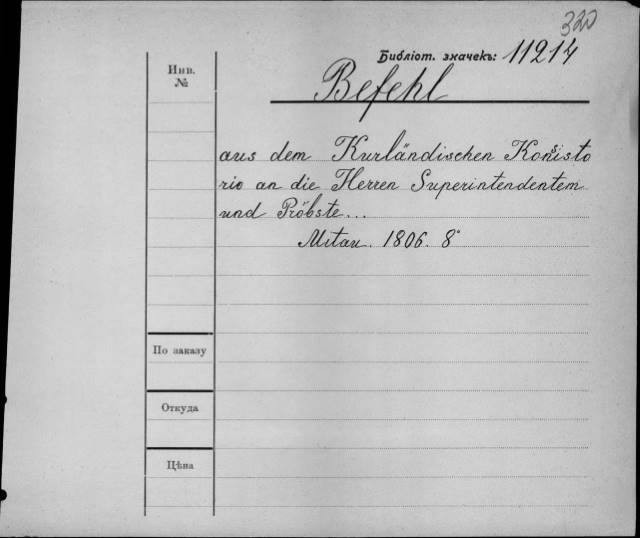 320
Библіот. значекъ: 11214
Инв.
№
Befehl
aus dem Kurländischen Konsisto
rio an die Herren Superintendentem
und Pröbste...
Mitau. 1806. 8°
По заказу
Откуда
Цѣна